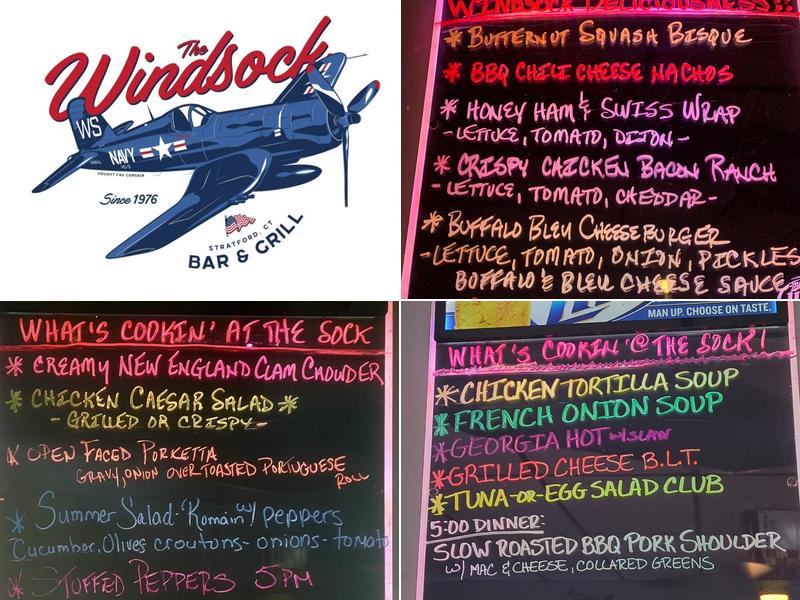 The
Windsock
WS
NAVY
VOUGHT F4U CORSAIR
Since 1976
STRATFORD, CT
BAR & GRILL
WINDSOCK DELICIOUSNESS!!
* BUTTERNUT SQUASH BISQUE
* BBQ CHILI CHEESE NACHOS
* HONEY HAM & SWISS WRAP
- LETTUCE, TOMATO, DIJON -
* CRISPY CHICKEN BACON RANCH
- LETTUCE, TOMATO, CHEDDAR -
* BUFFALO BLEU CHEESEBURGER
- LETTUCE, TOMATO, ONION, PICKLES
BUFFALO & BLEU CHEESE SAUCE
WHAT'S COOKIN' AT THE SOCK
* CREAMY NEW ENGLAND CLAM CHOWDER
* CHICKEN CAESAR SALAD *
- GRILLED OR CRISPY -
* OPEN FACED PORKETTA
GRAVY, ONION OVER TOASTED PORTUGUESE
ROLL
* Summer Salad - Romain w/ peppers
Cucumber, Olives croutons - onions - tomato
* STUFFED PEPPERS 5PM
MAN UP. CHOOSE ON TASTE.
WHAT'S COOKIN' @ THE SOCK!
* CHICKEN TORTILLA SOUP
* FRENCH ONION SOUP
* GEORGIA HOT w/ SLAW
* GRILLED CHEESE B.L.T.
* TUNA-OR-EGG SALAD CLUB
5:00 DINNER:
SLOW ROASTED BBQ PORK SHOULDER
W/ MAC & CHEESE, COLLARED GREENS